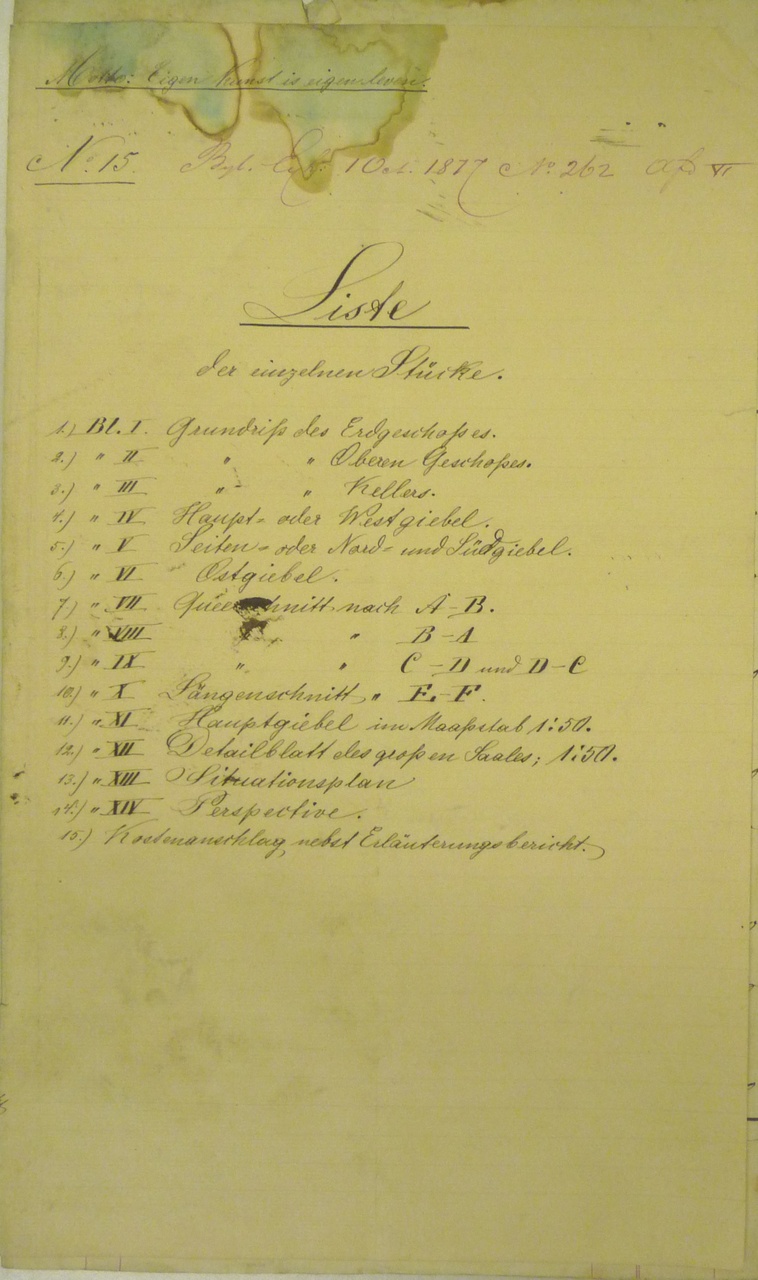 Motto: Eigen kunst is eigen leven.
No. 15. Byl. Exh. 10 Oct. 1877 No. 262 Afd VI
Liste
der einzelnen Stücke.
1.) Bl. I. Grundriß des Erdgeschoßes.
2.) " II " " Oberen Geschoßes.
3.) " III " " Kellers.
4.) " IV Haupt- oder Westgiebel.
5.) " V Seiten- oder Nord- und Südgiebel.
6.) " VI Ostgiebel.
7.) " VII Queerschnitt nach A-B.
8.) " VIII " " B-A
9.) " IX " " C-D und D-C
10.) " X Längenschnitt " E-F.
11.) " XI Hauptgiebel im Maaßstab 1:50.
12.) " XII Detailblatt des großen Saales; 1:50.
13.) " XIII Situationsplan
14.) " XIV Perspective.
15.) Kostenanschlag nebst Erläuterungsbericht.